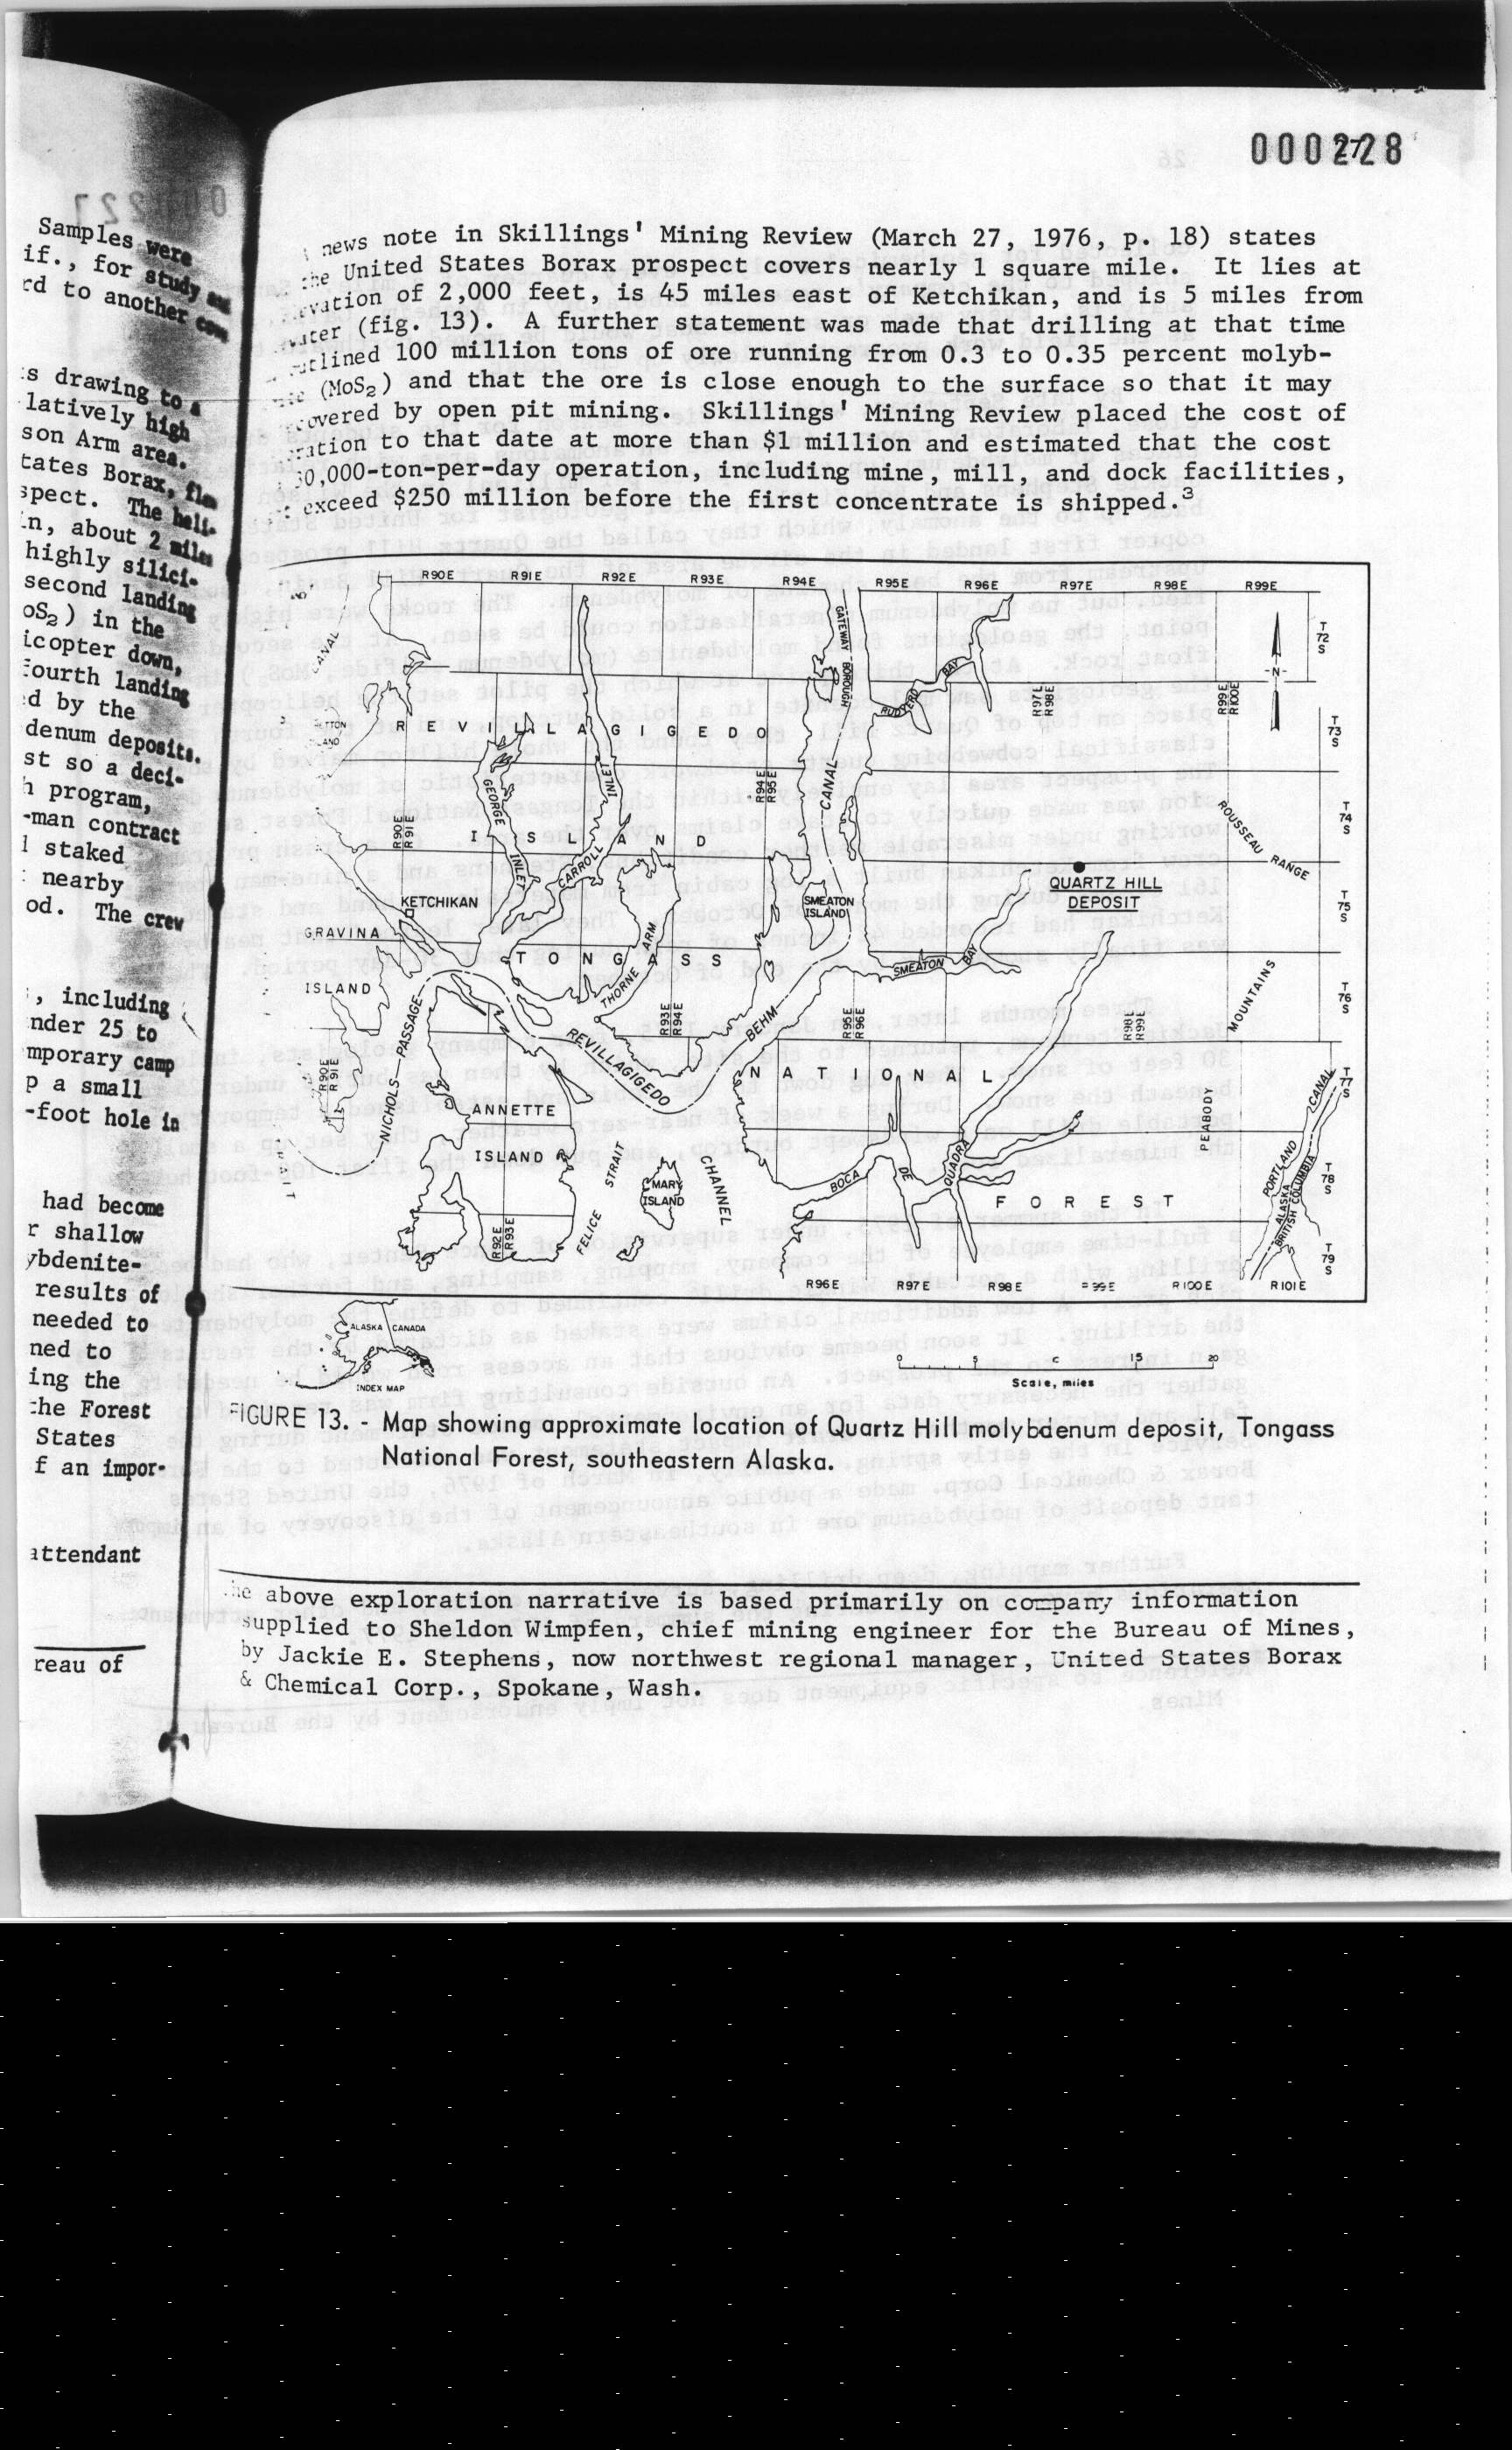 000228
27
Samples were
if., for study and
rd to another
s drawing to a
latively high
son Arm area.
tates Borax,
spect. The heli-
n, about 2 miles
highly silici-
second landing
oS₂) in the
icopter down,
fourth landing
d by the
denum deposits.
st so a deci-
h program,
-man contract
staked
nearby
od. The crew
, including
nder 25 to
mporary camp
p a small
-foot hole in
had become
r shallow
ybdenite-
results of
needed to
ned to
ing the
the Forest
States
f an impor-
attendant
reau of
news note in Skillings' Mining Review (March 27, 1976, p. 18) states
the United States Borax prospect covers nearly 1 square mile. It lies at
evation of 2,000 feet, is 45 miles east of Ketchikan, and is 5 miles from
water (fig. 13). A further statement was made that drilling at that time
utlined 100 million tons of ore running from 0.3 to 0.35 percent molyb-
(MoS₂) and that the ore is close enough to the surface so that it may
covered by open pit mining. Skillings' Mining Review placed the cost of
ration to that date at more than $1 million and estimated that the cost
0,000-ton-per-day operation, including mine, mill, and dock facilities,
exceed $250 million before the first concentrate is shipped.³
R90E R91E R92E R93E R94E R95E R96E R97E R98E R99E
T 72 S
N
GATEWAY BOROUGH
CANAL
RUDYERD BAY
R97E R98E
R99E R100E
T 73 S
REVILLAGIGEDO
GEORGE INLET
INLET
R94E R95E
CANAL
T 74 S
ROUSSEAU RANGE
R90E R91E
ISLAND
CARROLL
QUARTZ HILL
DEPOSIT
SMEATON
ISLAND
T 75 S
KETCHIKAN
GRAVINA
ISLAND
TONGASS
THORNE ARM
SMEATON BAY
MOUNTAINS
T 76 S
R93E R94E
R95E R96E
R98E R99E
NICHOLS PASSAGE
REVILLAGIGEDO
BEHM
R90E R91E
NATIONAL
T 77 S
CANAL
ANNETTE
ISLAND
PEABODY
STRAIT
MARY
ISLAND
CHANNEL
BOCA DE QUADRA
PORTLAND
T 78 S
FOREST
ALASKA
BRITISH COLUMBIA
FELICE
R92E R93E
T 79 S
R96E R97E R98E 99E R100E R101E
ALASKA CANADA
INDEX MAP
0 5 15 20
Scale, miles
FIGURE 13. - Map showing approximate location of Quartz Hill molybdenum deposit, Tongass
National Forest, southeastern Alaska.
The above exploration narrative is based primarily on company information
supplied to Sheldon Wimpfen, chief mining engineer for the Bureau of Mines,
by Jackie E. Stephens, now northwest regional manager, United States Borax
& Chemical Corp., Spokane, Wash.